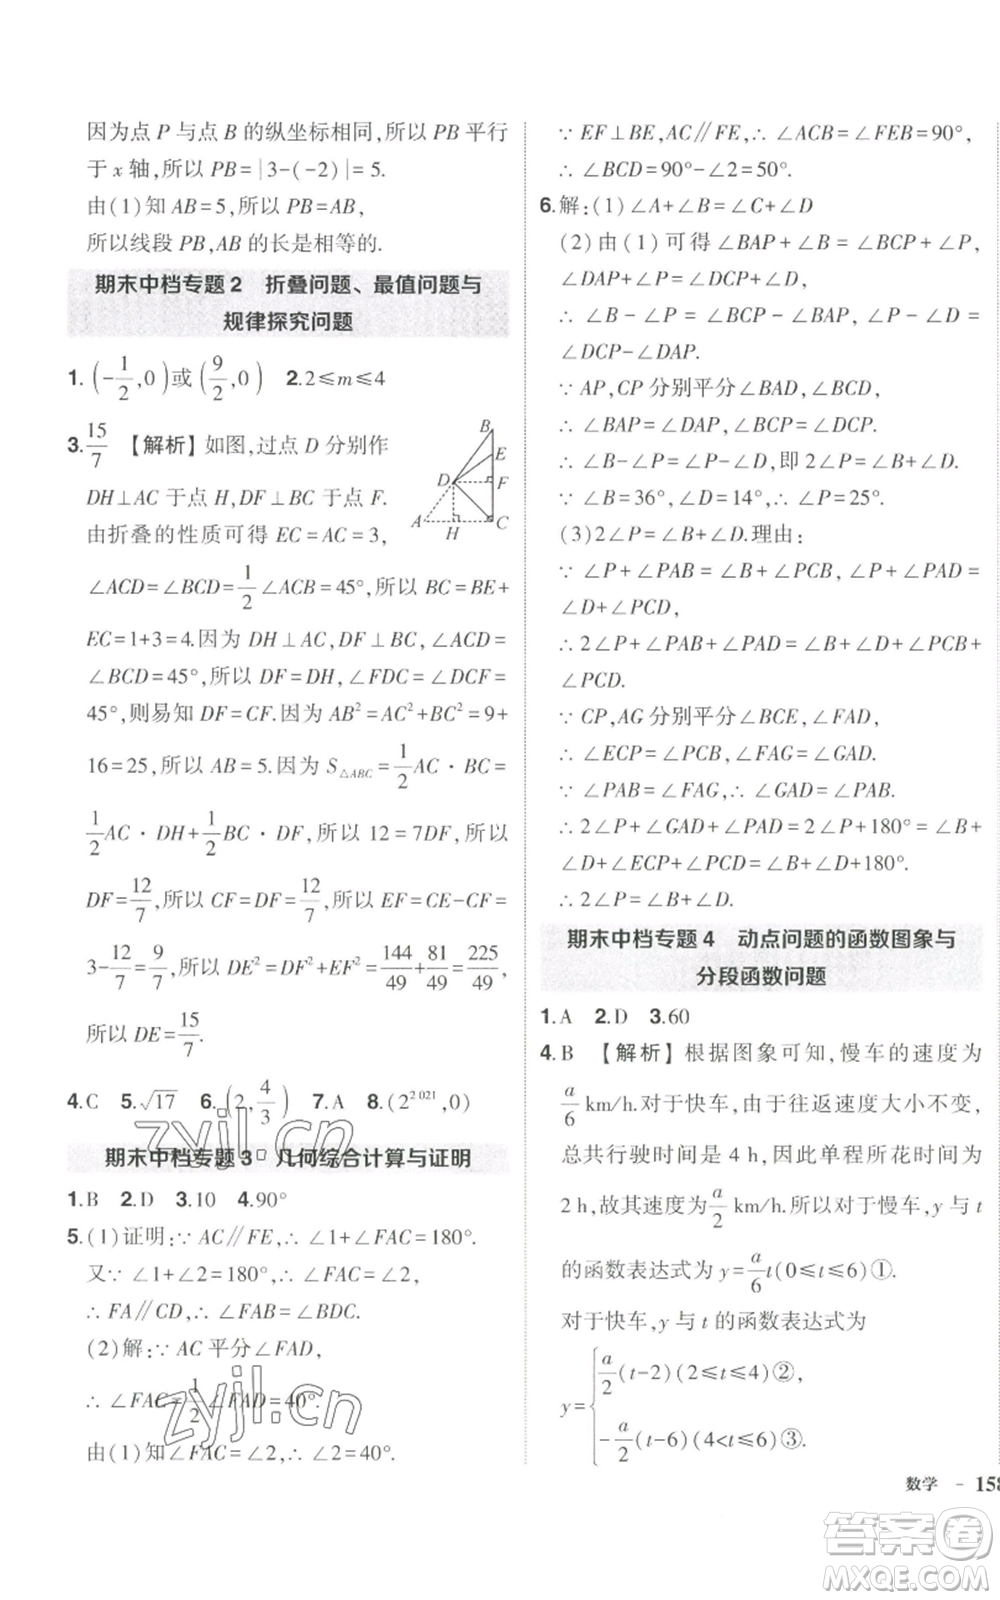 因为点 P 与点 B 的纵坐标相同,所以 PB 平行
于 x 轴,所以 PB=|3-(-2)|=5.
由(1)知 AB=5,所以 PB=AB,
所以线段 PB,AB 的长是相等的.
期末中档专题2 折叠问题、最值问题与
规律探究问题
1. (-1/2,0)或(9/2,0) 2.2≤m≤4
3. 15/7 【解析】如图,过点 D 分别作
DH⊥AC 于点 H,DF⊥BC 于点 F.
由折叠的性质可得 EC=AC=3,
∠ACD=∠BCD=1/2∠ACB=45°,所以 BC=BE+
EC=1+3=4.因为 DH⊥AC,DF⊥BC,∠ACD=
∠BCD=45°,所以 DF=DH,∠FDC=∠DCF=
45°,则易知 DF=CF.因为 AB²=AC²+BC²=9+
16=25,所以 AB=5.因为 S△ABC=1/2AC·BC=
1/2AC·DH+1/2BC·DF,所以 12=7DF,所以
DF=12/7,所以 CF=DF=12/7,所以 EF=CE-CF=
3-12/7=9/7,所以 DE²=DF²+EF²=144/49+81/49=225/49,
所以 DE=15/7.
B
E
D
F
A
H
C
4.C 5.√17 6.(2,4/3) 7.A 8.(2^2021,0)
期末中档专题3 几何综合计算与证明
1.B 2.D 3.10 4.90°
5.(1)证明:∵AC∥FE,∴∠1+∠FAC=180°.
又∵∠1+∠2=180°,∴∠FAC=∠2,
∴FA∥CD,∴∠FAB=∠BDC.
(2)解:∵AC 平分∠FAD,
∴∠FAC=1/2∠FAD=40°.
由(1)知∠FAC=∠2,∴∠2=40°.
∵EF⊥BE,AC∥FE,∴∠ACB=∠FEB=90°,
∴∠BCD=90°-∠2=50°.
6.解:(1)∠A+∠B=∠C+∠D
(2)由(1)可得∠BAP+∠B=∠BCP+∠P,
∠DAP+∠P=∠DCP+∠D,
∴∠B-∠P=∠BCP-∠BAP,∠P-∠D=
∠DCP-∠DAP.
∵AP,CP 分别平分∠BAD,∠BCD,
∴∠BAP=∠DAP,∠BCP=∠DCP,
∴∠B-∠P=∠P-∠D,即 2∠P=∠B+∠D.
∵∠B=36°,∠D=14°,∴∠P=25°.
(3)2∠P=∠B+∠D.理由:
∵∠P+∠PAB=∠B+∠PCB,∠P+∠PAD=
∠D+∠PCD,
∴2∠P+∠PAB+∠PAD=∠B+∠D+∠PCB+
∠PCD.
∵CP,AG 分别平分∠BCE,∠FAD,
∴∠ECP=∠PCB,∠FAG=∠GAD.
∵∠PAB=∠FAG,∴∠GAD=∠PAB.
∴2∠P+∠GAD+∠PAD=2∠P+180°=∠B+
∠D+∠ECP+∠PCD=∠B+∠D+180°.
∴2∠P=∠B+∠D.
期末中档专题4 动点问题的函数图象与
分段函数问题
1.A 2.D 3.60
4.B 【解析】根据图象可知,慢车的速度为
a/6 km/h.对于快车,由于往返速度大小不变,
总共行驶时间是 4 h,因此单程所花时间为
2 h,故其速度为 a/2 km/h.所以对于慢车,y 与 t
的函数表达式为 y=a/6 t(0≤t≤6)①.
对于快车,y 与 t 的函数表达式为
y={a/2(t-2)(2≤t≤4)②,
-a/2(t-6)(4<t≤6)③.
数学 - 158
zyjl.cn
zyjl.cn
答案卷
MXQE.COM